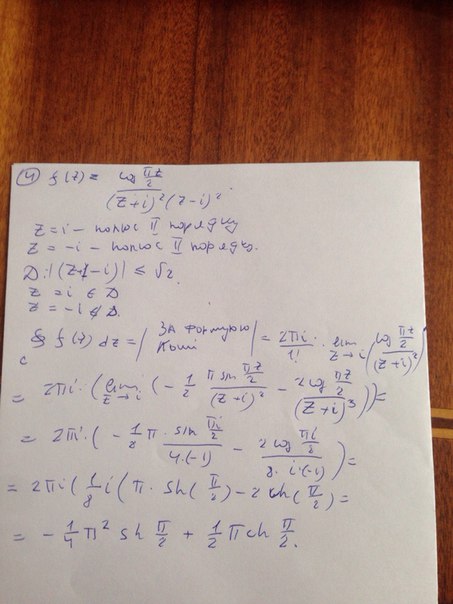 ④ f(z) = cos πz/2 / (z+i)²(z-i)².
z = i - полюс II порядку
z = -i - полюс II порядку.
D: |(z-1-i)| ≤ √2.
z = i ∈ D
z = -i ∉ D.
∮c f(z) dz = | За формулою Коші | = 2πi/1! · lim z→i (cos πz/2 / (z+i)²)
= 2πi · (lim z→i (- 1/2 π sin πz/2 / (z+i)² - 2 cos πz/2 / (z+i)³)) =
= 2πi · (- 1/2 π · sin πi/2 / 4·(-1) - 2 cos πi/2 / 8·i·(-1)) =
= 2πi (1/8 i (π · sh(π/2) - 2 ch(π/2) =
= - 1/4 π² sh π/2 + 1/2 π ch π/2.